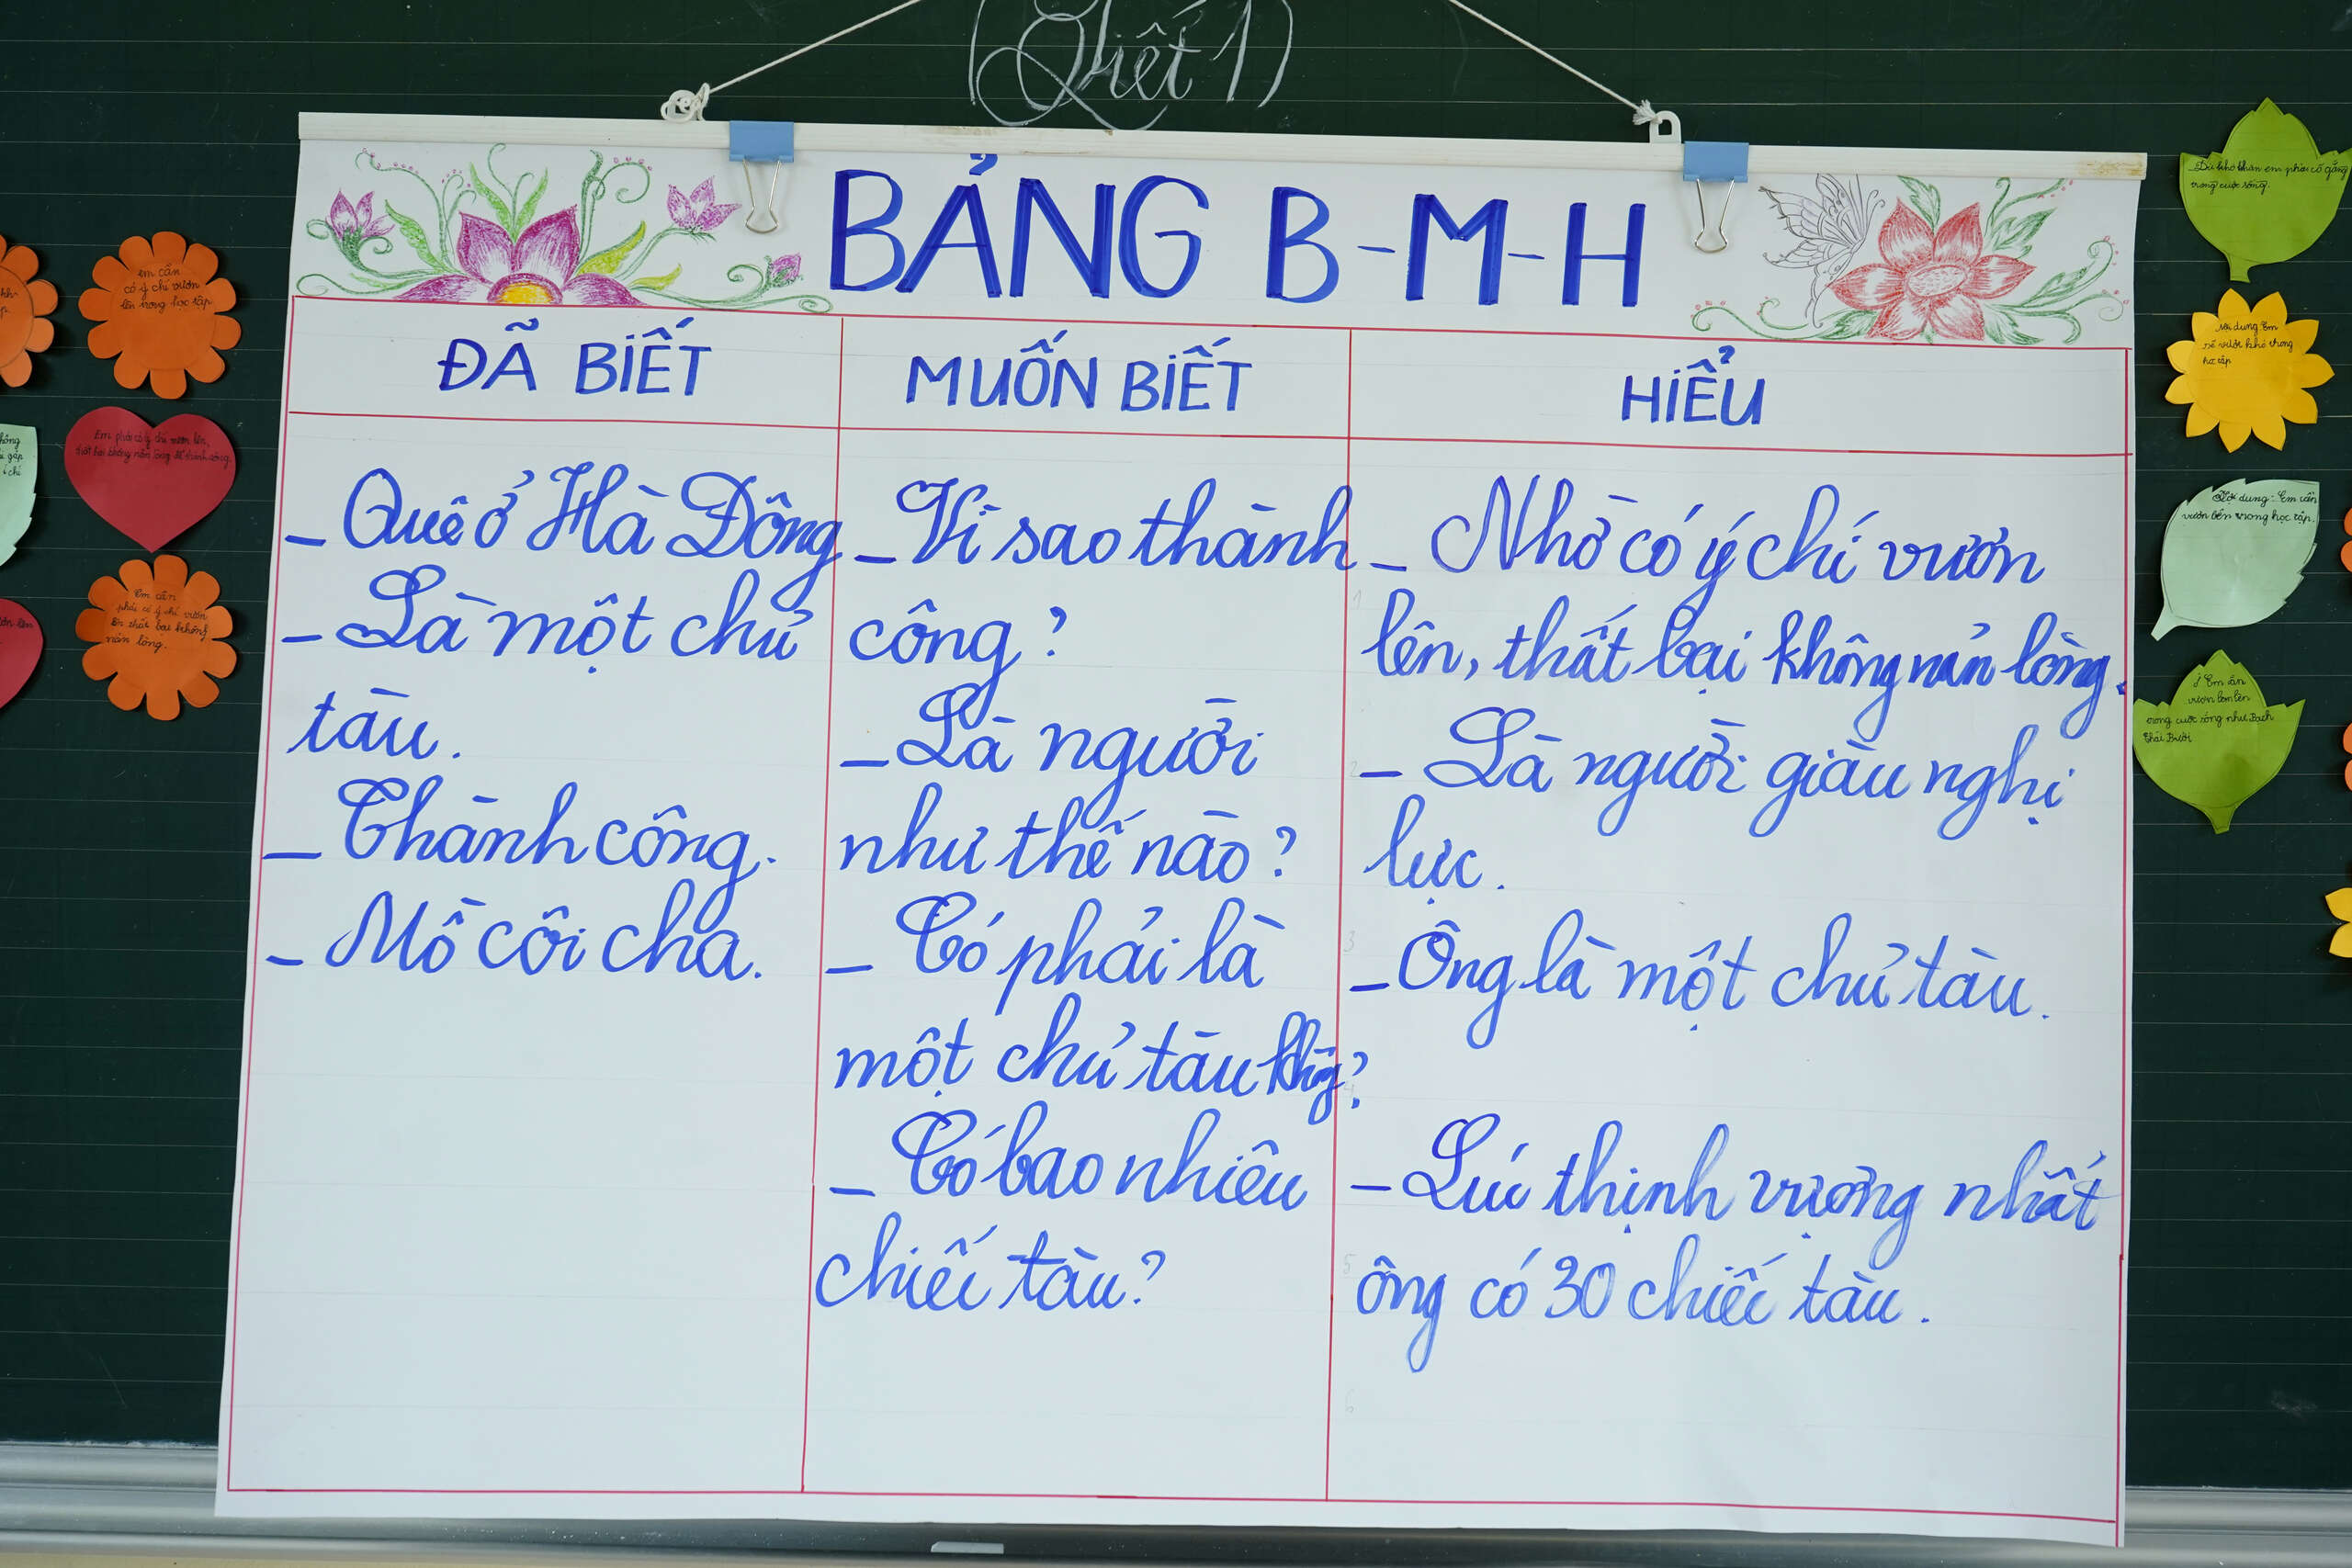 (Tiết 1)
BẢNG B-M-H
ĐÃ BIẾT
- Quê ở Hà Đông
- Là một chủ
tàu.
- Thành công.
- Mồ côi cha.
MUỐN BIẾT
- Vì sao thành
công?
- Là người
như thế nào?
- Có phải là
một chủ tàu không?
- Có bao nhiêu
chiếc tàu?
HIỂU
- Nhờ có ý chí vươn
lên, thất bại không nản lòng.
- Là người giàu nghị
lực.
- Ông là một chủ tàu.
- Lúc thịnh vượng nhất
ông có 30 chiếc tàu.
1
2
3
4
5
6
em cần
có ý chí vươn
lên trong học tập
Em phải có ý chí vươn lên,
thất bại không nản lòng
Em cần
phải có ý chí vươn
lên thất bại không
nản lòng.
Dù khó khăn em phải cố gắng
trong cuộc sống.
Nội dung: Em
sẽ vượt khó trong
học tập
Nội dung: Em cần
vươn lên trong học tập.
vươn lên
trong cuộc sống như Bạch
Thái Bưởi